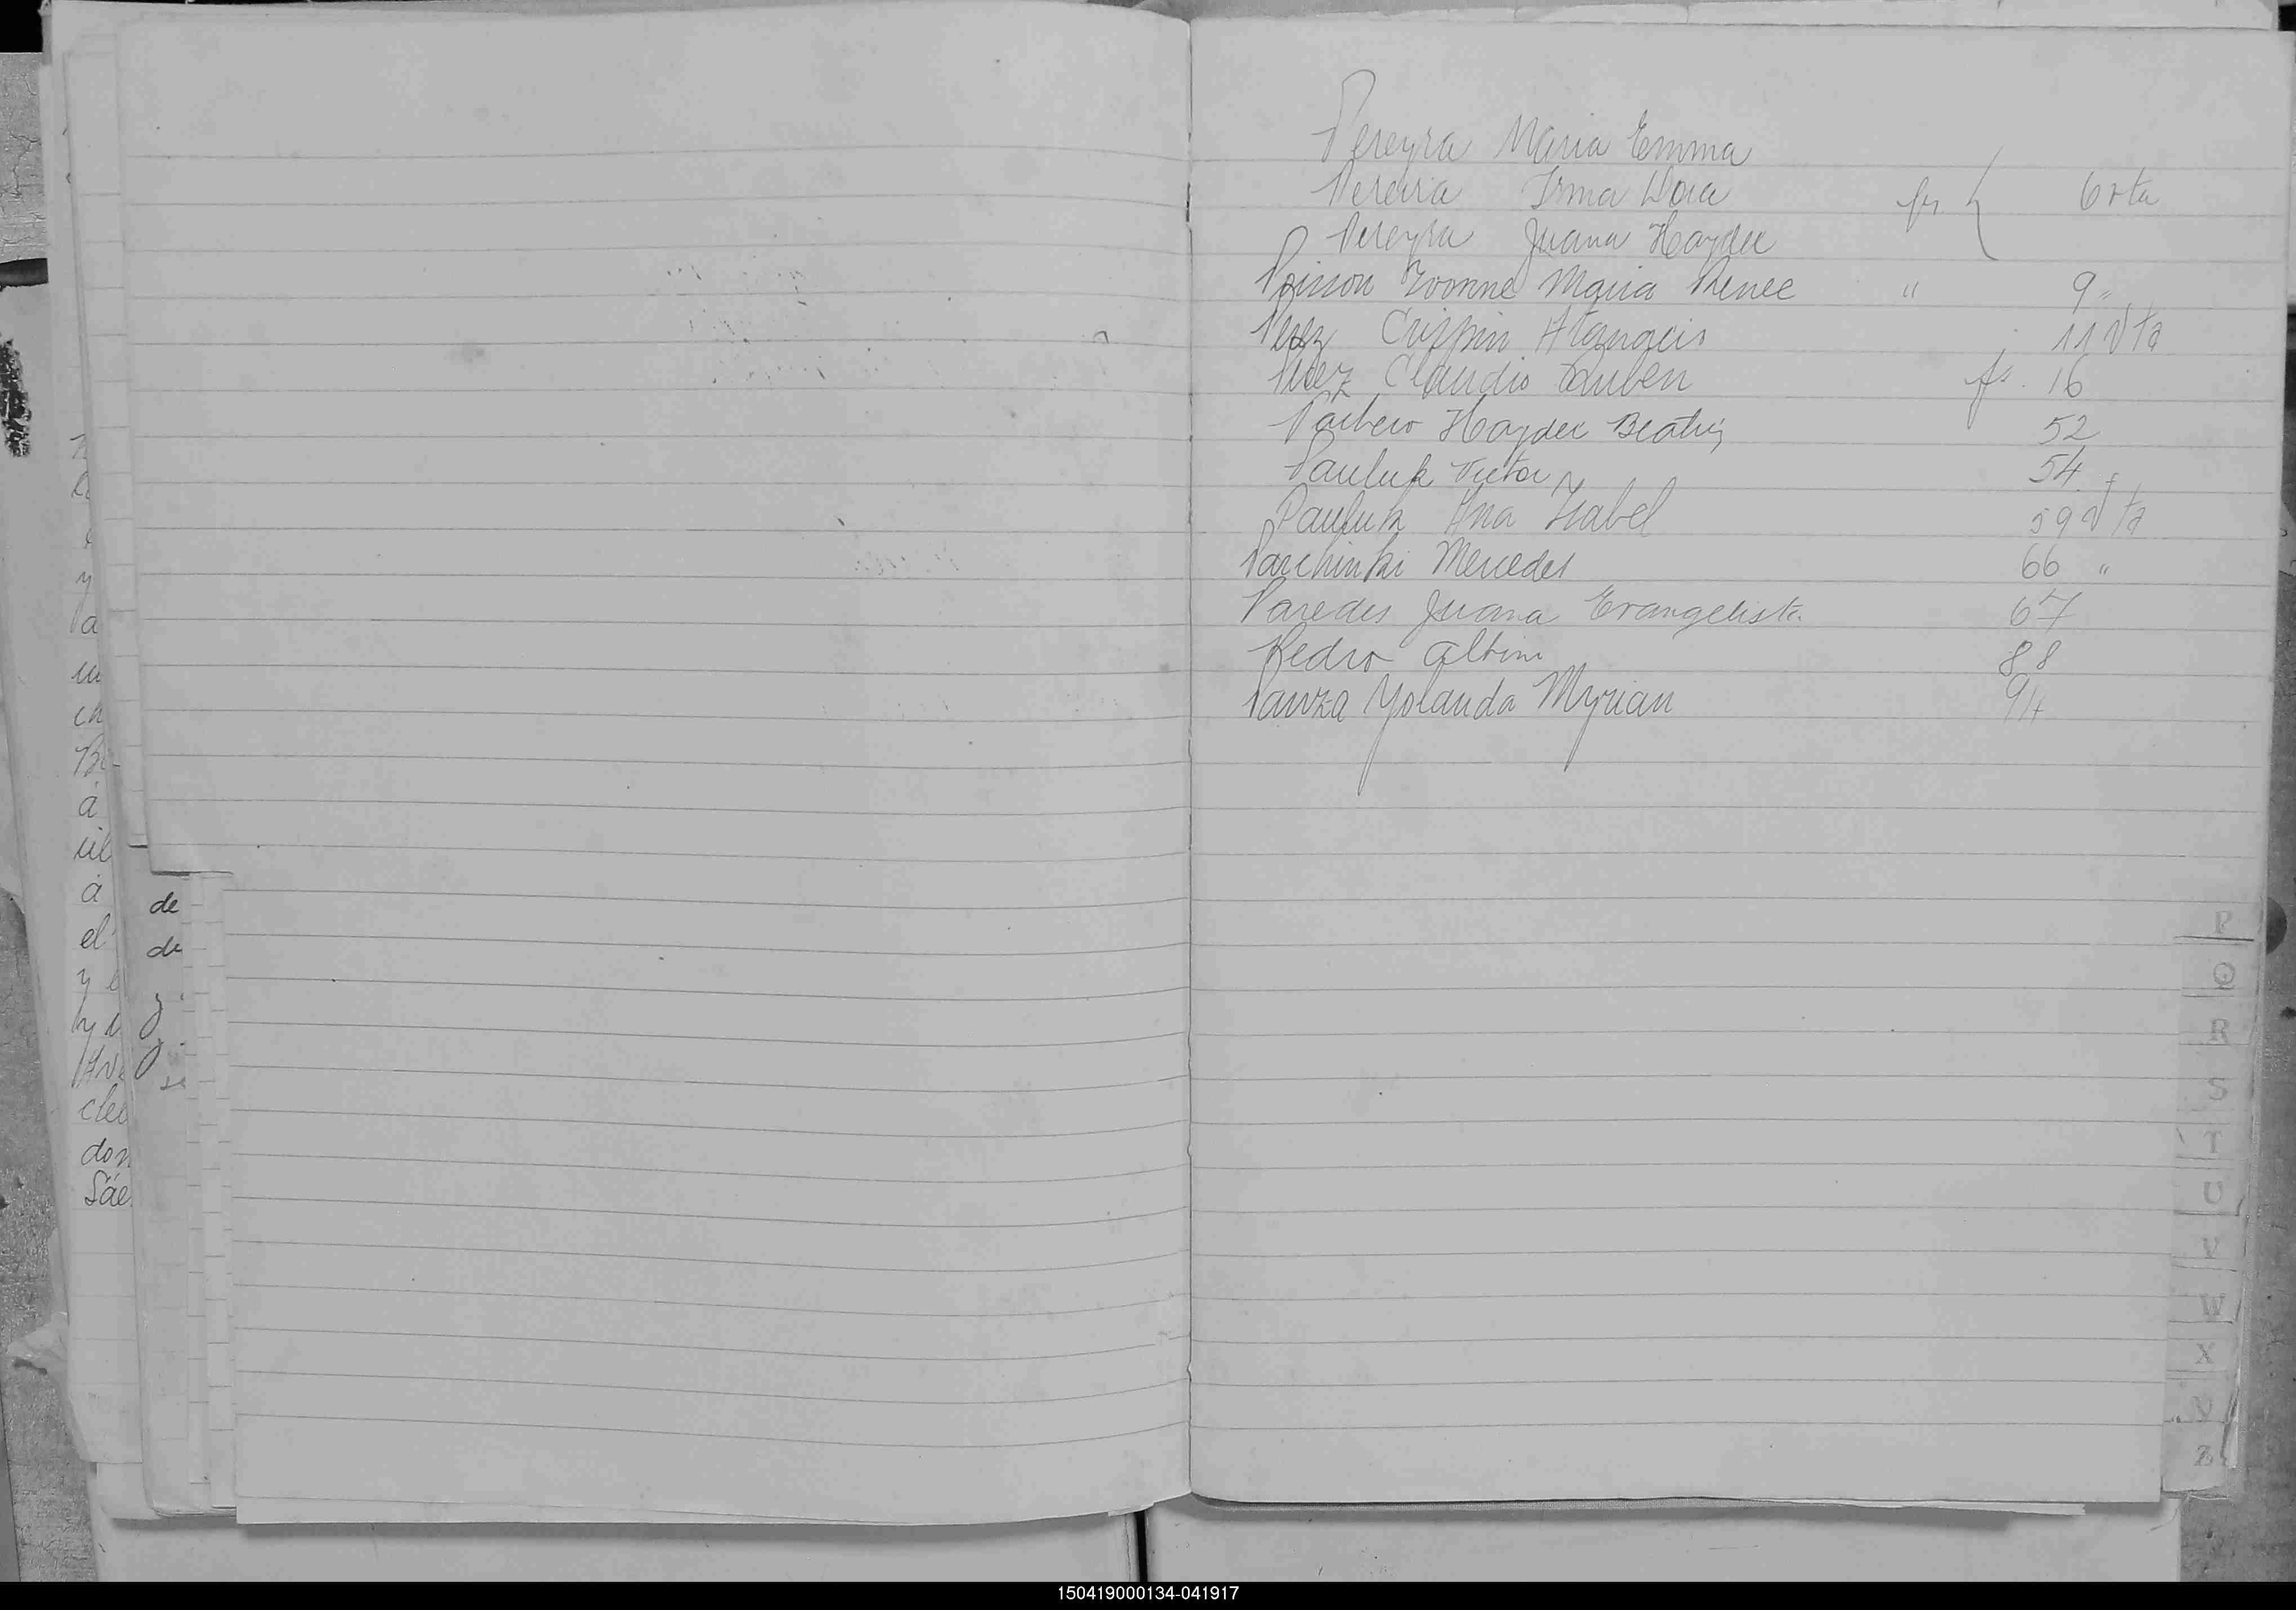 Pereyra Maria Emma
Pereira Irma Dora fs 6 vta
Pereyra Juana Haydee
Poisson Ivonne Maria Renee " 9 "
Perez Crispin 11 Vta
Perez Claudio Ruben fs. 16
Haydee Beatriz 52
Pauluk Victor 54
Pauluk Ana Isabel 59 Vta
Parchinski Mercedes 66 "
Paredes Juana Evangelista 67
Pedro Albino 88
Panza Yolanda Myrian 94
de
de
a
á
á
el
P
Q
R
S
T
U
V
W
X
Y
Z
150419000134-041917